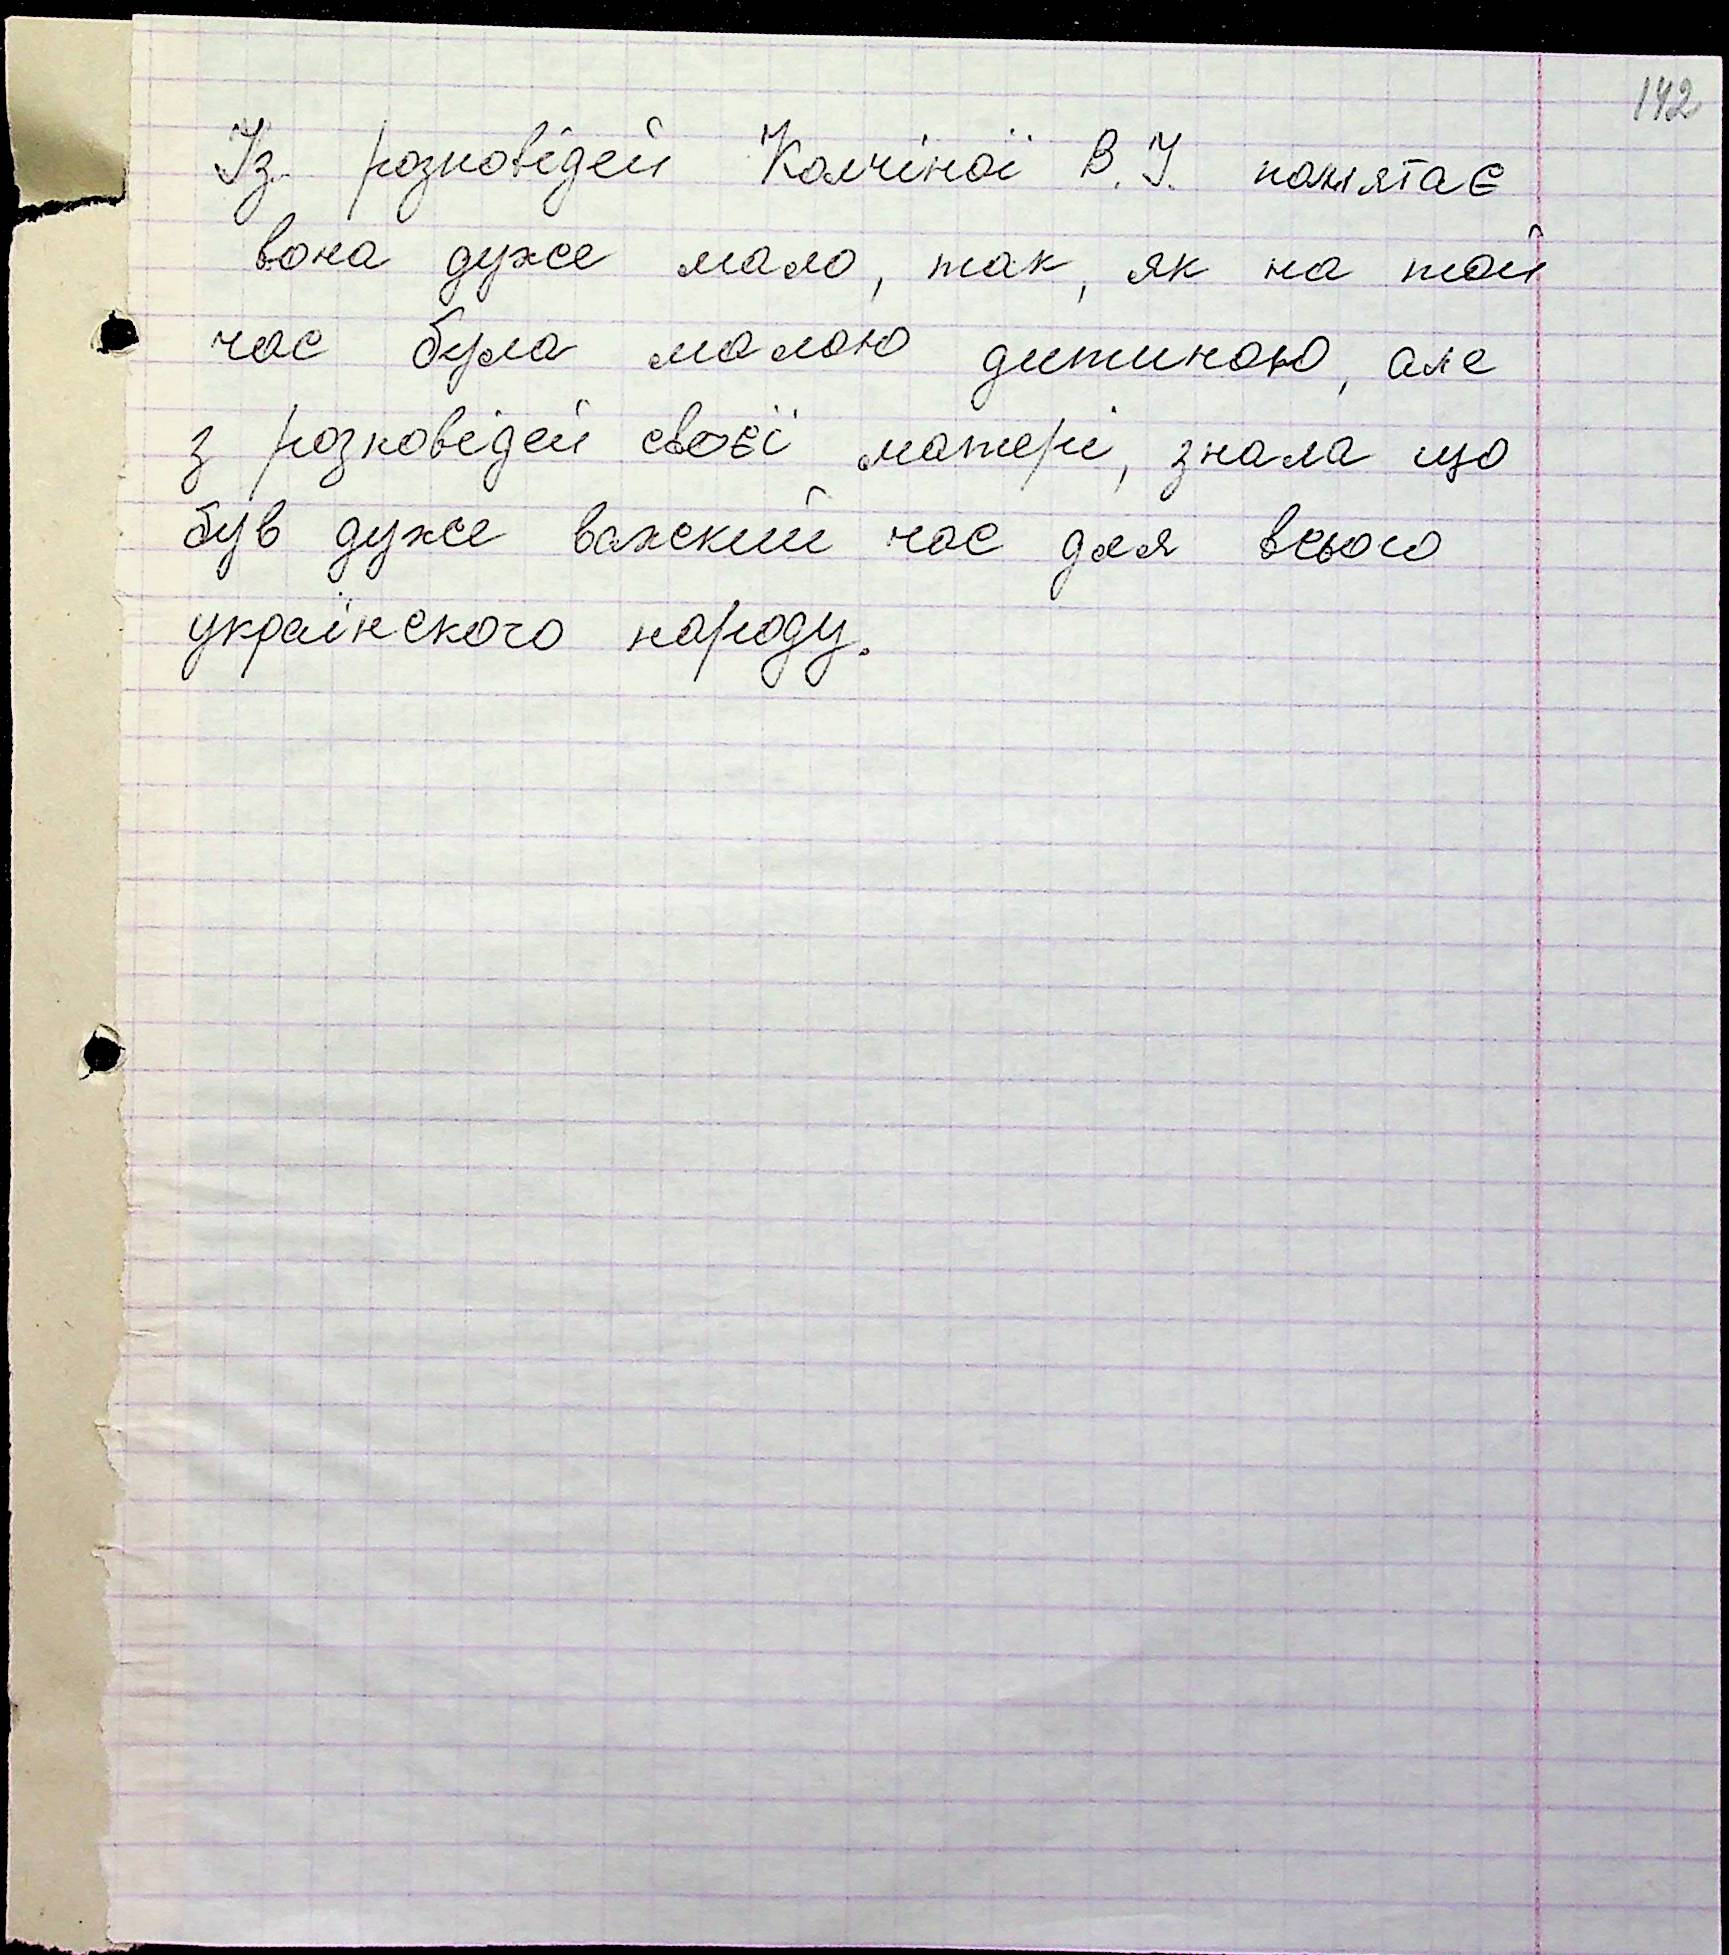 142
Із розповідей Колчіної В. І. памятає
вона дуже мало, так, як на той
час була малою дитиною, але
з розповідей своєї матері, знала що
був дуже важский час для всього
українского народу.